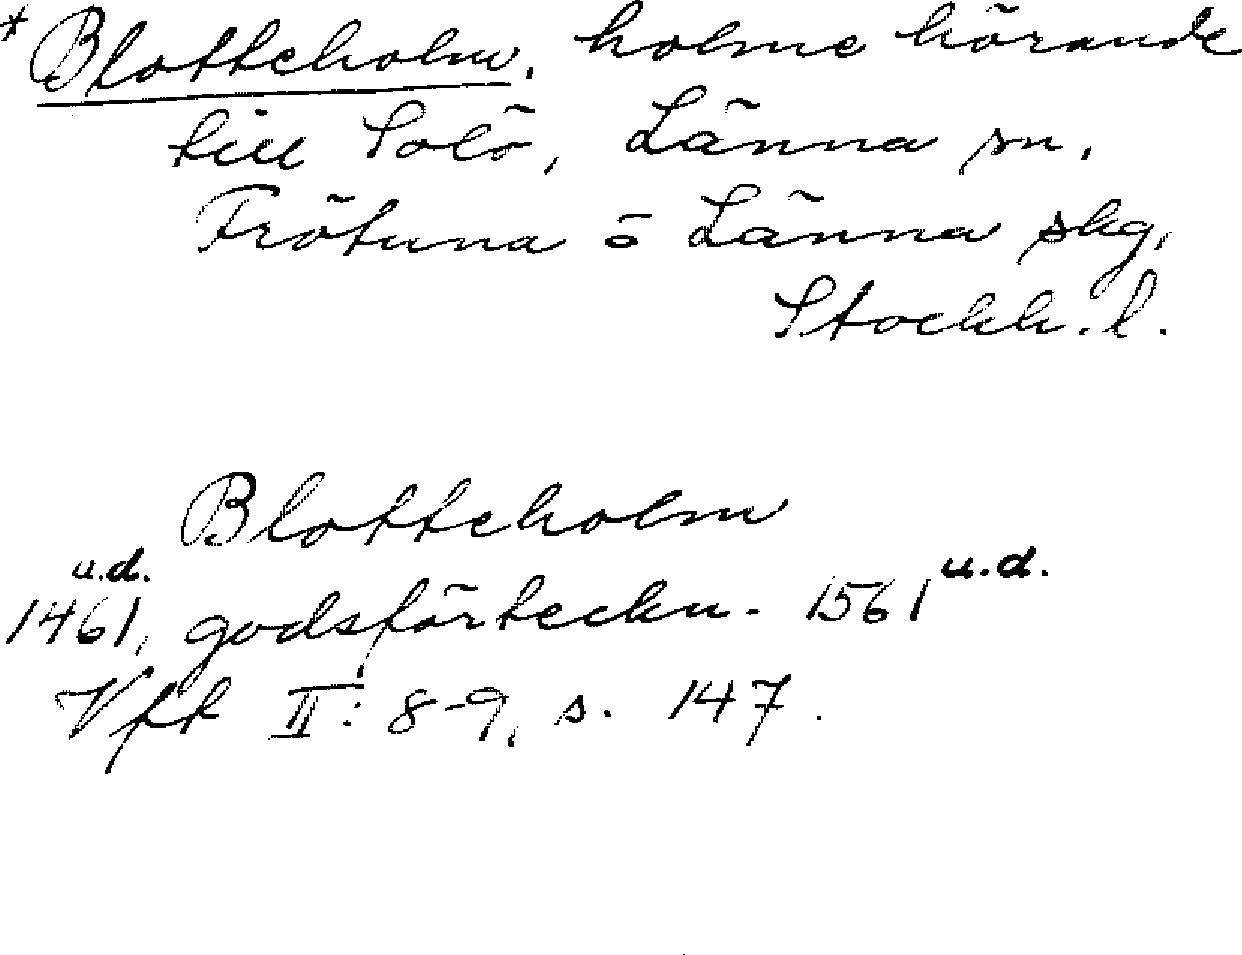 * Blotteholm, holme hörande
till Solö, Länna sn,
Frötuna o Länna skg,
Stockh. l.
Blotteholm
u.d. u.d.
1461, godsförteckn. 1561
Vfk II: 8-9, s. 147.